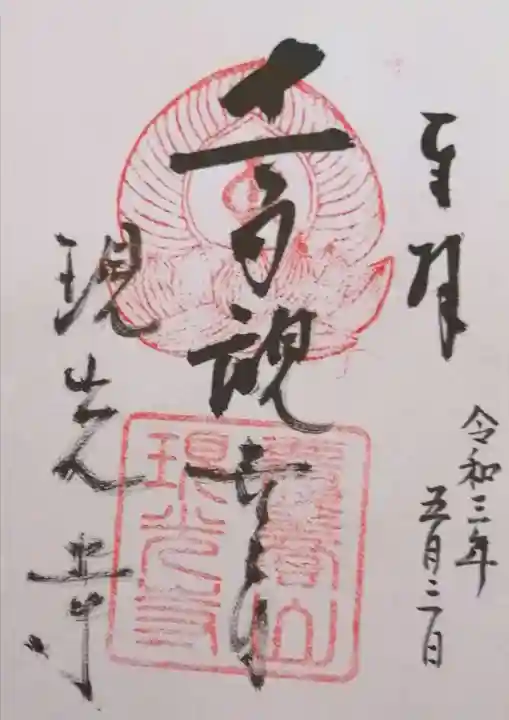 奉拝
令和三年
五月三日
十一面観世音
現光寺
現光寺